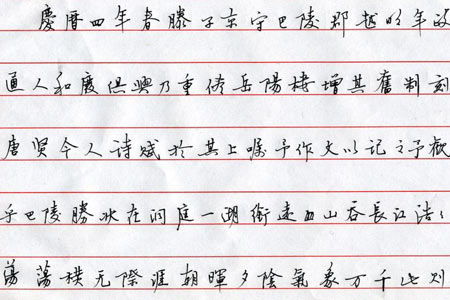 慶曆四年春滕子京守巴陵郡越明年政
通人和廢俱興乃重修岳陽樓增其舊制刻
唐賢今人詩賦於其上囑予作文以記之予觀
乎巴陵勝狀在洞庭一湖銜遠山吞長江浩々
蕩蕩橫无際涯朝暉夕陰氣象万千此則